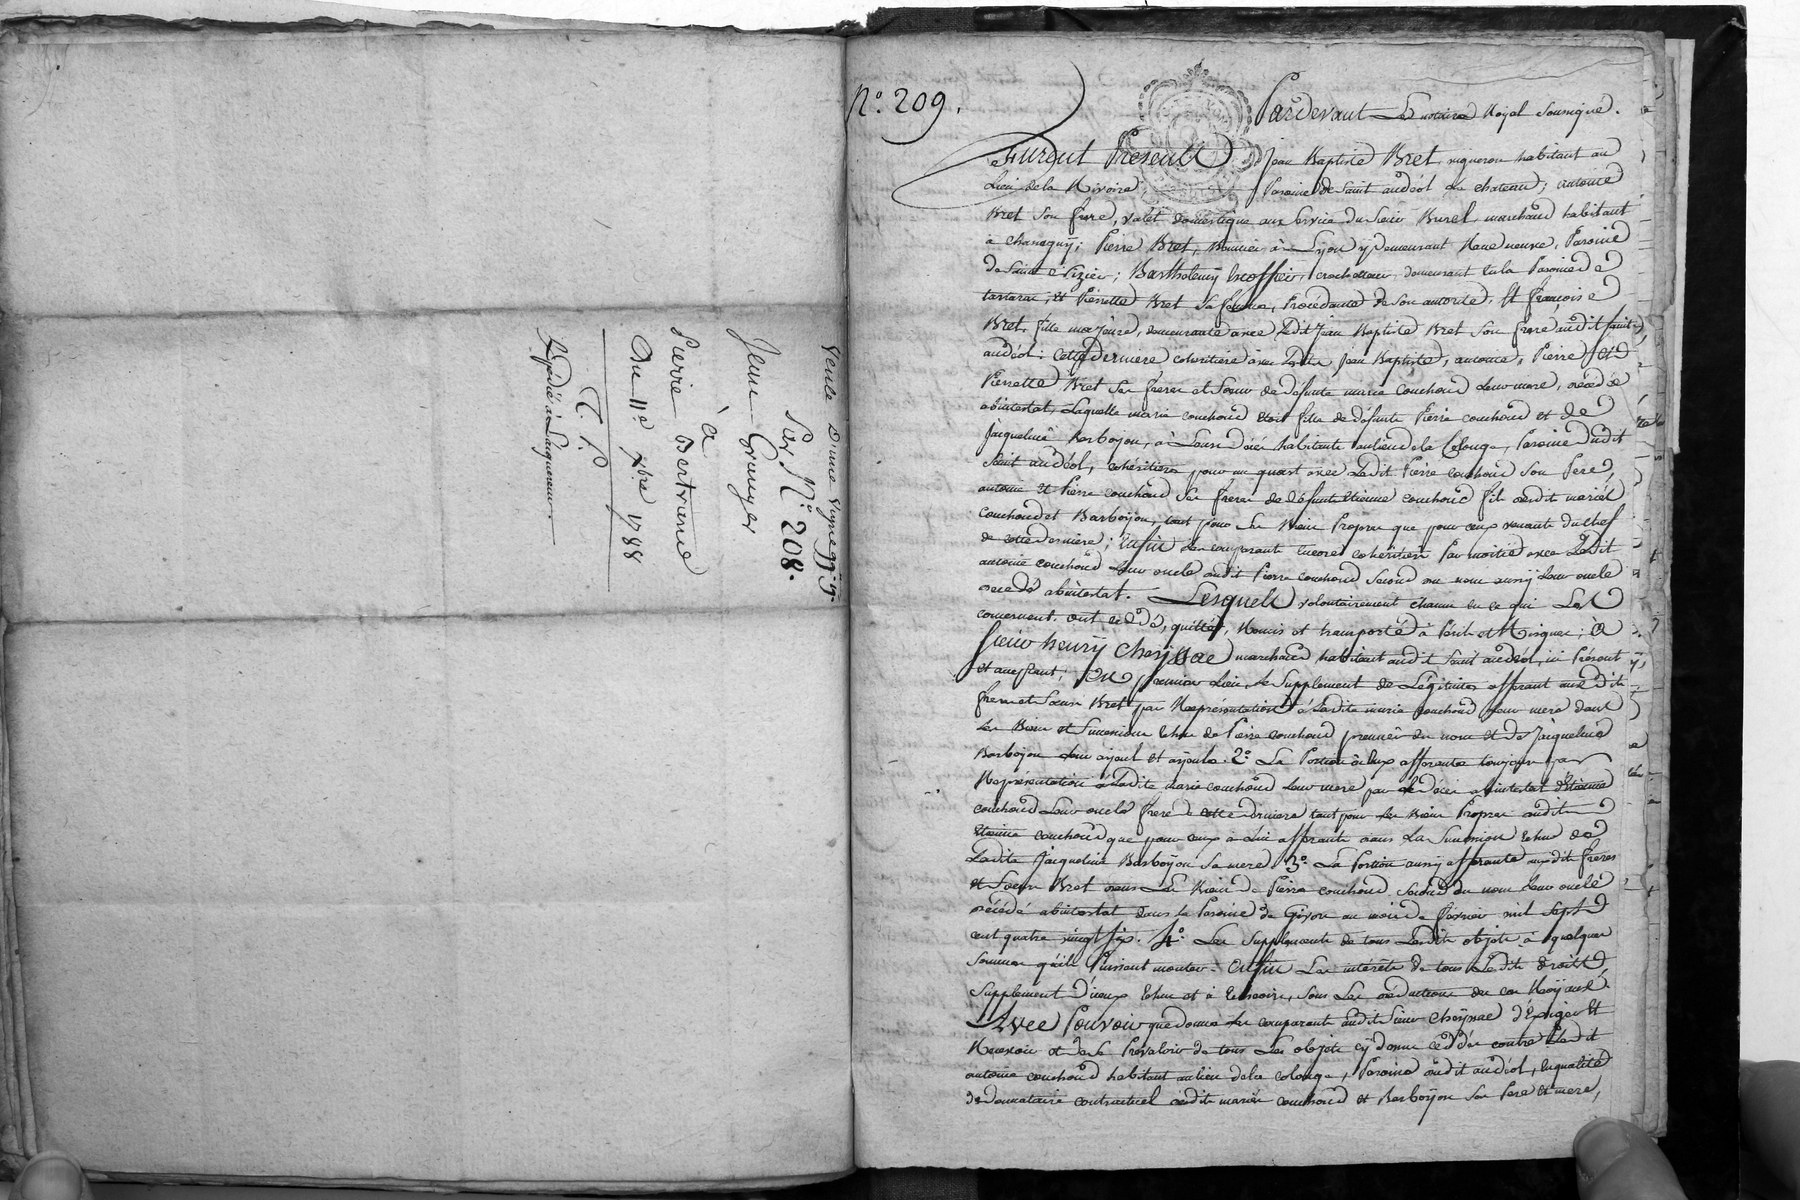 Vente d'une vigne 99 lt 19 s
Sur N.° 208.
Jeune Granger
à
Pierre Bertrand
Du 11e Xbre 1788
C. P.
Expédié à l'acquereur.
N.° 209.
Pardevant Le notaire Royal Soussigné.
Furent Présents Jean Baptiste Bret, vigneron habitant au
Lieu de la Rivoire Paroisse de Saint andéol le chateau; antoine
Bret son frere, valet domestique aux service du sieur Burel marchand habitant
à Chassagny; Pierre Bret, à Lyon y demeurant Rue neuve, Paroisse
de Saint Nizier; Barthelemy Escoffier, crocheteur demeurant en la Paroisse de
tartaras, et Pierrette Bret sa femme, Procédante de son autorité, Et françoise
Bret, fille majeure, demeurante avec Ledit Jean Baptiste Bret son frere audit Saint
andéol; Cette derniere cohéritiere avec Lesdits Jean Baptiste, antoine, Pierre, et
Pierrette Bret ses freres et Soeur de défunte marie couchoud leur mere, décédée
abintestat, Laquelle marie couchoud étoit fille de défunts Pierre couchoud et de
Jacqueline Barboyon, à Leurs décès habitants au lieu de la Colonge, Paroisse dudit
Saint andéol, cohéritiere pour un quart avec Ledit Pierre couchoud son Pere,
antoine Et Pierre couchoud ses freres de défunt Etienne couchoud fils desdits mariés
couchoud et Barboyon, tant pour ses Biens Propres que pour ceux venants du chef
de cette derniere; Enfin les comparants Encore cohéritiers Par moitié avec Ledit
antoine couchoud Leur oncle dudit Pierre couchoud Second du nom aussy Leur oncle
décédé abintestat. Lesquels volontairement chacun en ce qui Les
concernent, ont cédé, quitté, Remis et transporté à Péril et Risques; à
Sieur henry Cheyssac marchand habitant audit Saint andéol, ici Présent
et acceptant; En premier Lieu, Le Supplement de Légitimes afferant aux dits
freres et Soeurs Bret par Représentation à Ladite marie couchoud Leur mere dans
Les Biens et Successions Echus de Pierre couchoud premier du nom et de Jacqueline
Barboyon Leurs ayeul et ayeule. 2.° La Portion à Eux afferante toujours par
Représentation à Ladite marie couchoud Leur mere par le décès abintestat d'Etienne
couchoud Leur oncle frere à cette derniere tant pour Les Biens Propres audit
Etienne couchoud que pour ceux à Lui afferants dans La Succession Echue de
Ladite Jacqueline Barboyon sa mere. 3.° La Portion aussy afferante auxdits freres
et Soeurs Bret dans Les Biens de Pierre couchoud Second du nom Leur oncle
décédé abintestat dans la Paroisse de Givors au mois de février mil Sept
cent quatre vingt six. 4.° Les Supplements de tous Lesdits objets à quelques
Sommes qu'ils Puissent monter. Enfin Les intérêts de tous Lesdits droits,
Supplement d'iceux Echus et à Echeoir, Sous Les déductions des cas Royaux.
Avec Pouvoir que donnent Les comparants audit Sieur Cheyssac d'Exiger Et
Recevoir et de se Prevaloir de tous Les objets cy dessus cédés contre Ledit
antoine couchoud habitant au lieu de la colonge, Paroisse dudit andéol, En qualité
de donnataire contractuel desdits mariés couchoud et Barboyon ses Pere et mere,